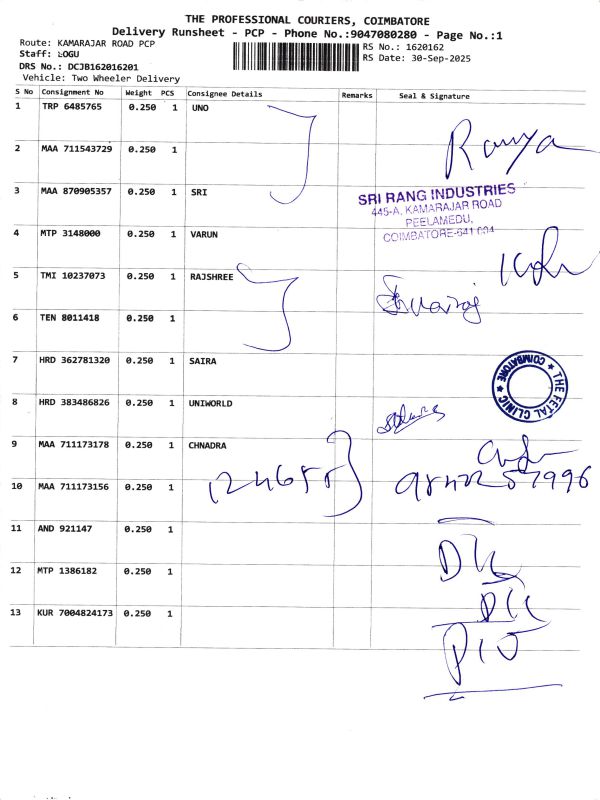 THE PROFESSIONAL COURIERS, COIMBATORE
Delivery Runsheet - PCP - Phone No.:9047080280 - Page No.:1
Route: KAMARAJAR ROAD PCP
RS No.: 1620162
Staff: LOGU
RS Date: 30-Sep-2025
DRS No.: DCJB162016201
Vehicle: Two Wheeler Delivery
S No Consignment No Weight PCS Consignee Details Remarks Seal & Signature
1 TRP 6485765 0.250 1 UNO
2 MAA 711543729 0.250 1
Ramya
3 MAA 870905357 0.250 1 SRI
SRI RANG INDUSTRIES
445-A, KAMARAJAR ROAD
PEELAMEDU,
COIMBATORE-641 004
4 MTP 3148000 0.250 1 VARUN
5 TMI 10237073 0.250 1 RAJSHREE
6 TEN 8011418 0.250 1
7 HRD 362781320 0.250 1 SAIRA
THE FETAL CLINIC
COIMBATORE
8 HRD 383486826 0.250 1 UNIWORLD
9 MAA 711173178 0.250 1 CHNADRA
10 MAA 711173156 0.250 1
11 AND 921147 0.250 1
12 MTP 1386182 0.250 1
13 KUR 7004824173 0.250 1